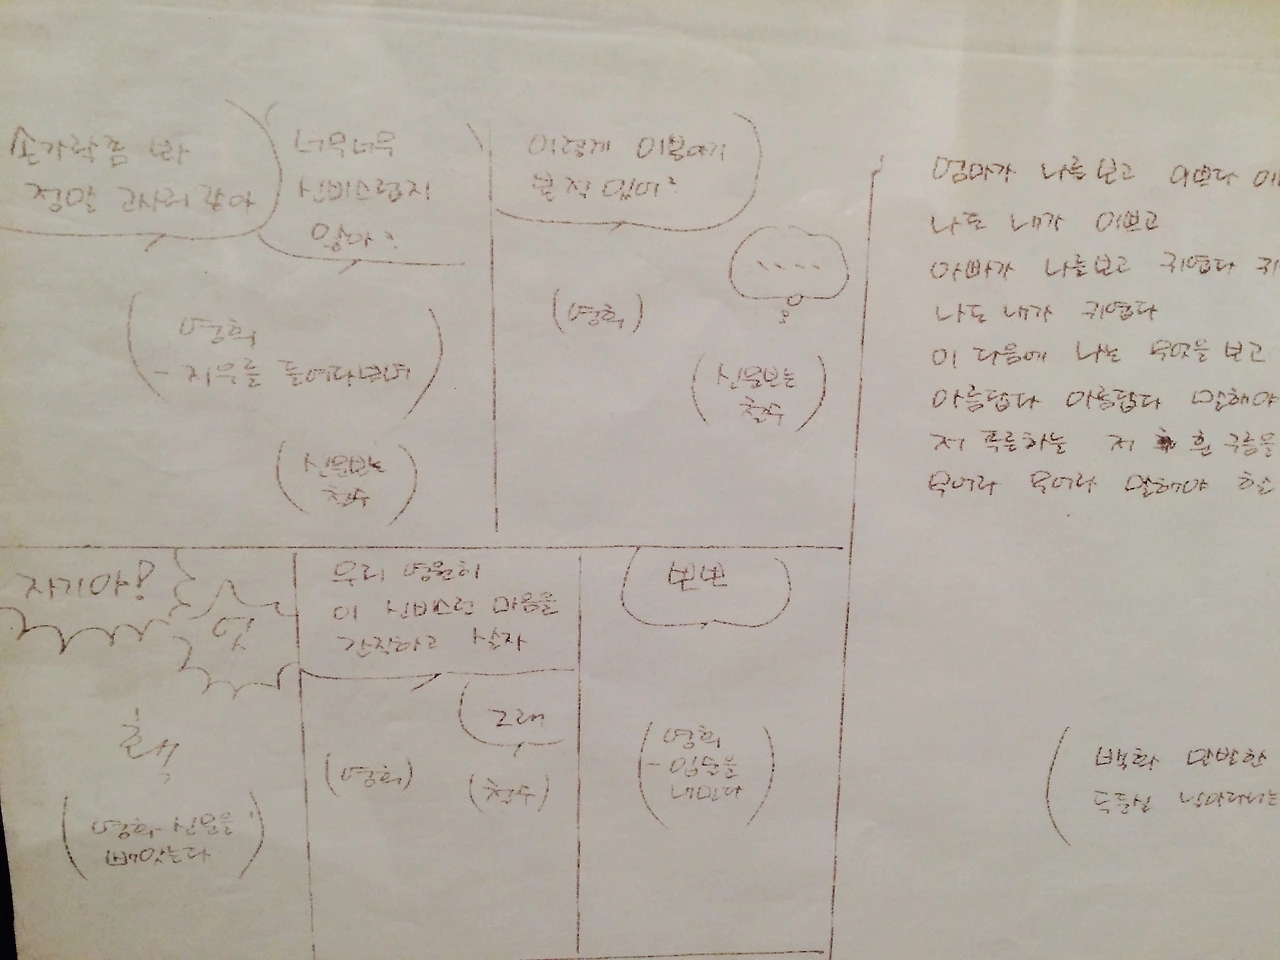 손가락좀 봐
정말 고사리 같아
너무너무
신비스럽지
않아?
영희
- 지우를 들여다보며
신문보는
철수
이렇게 이불애기
본적 있어?
....
(영희)
신문보는
철수
자기야!
엇
홱
영희 신문을
빼앗는다
우리 영원히
이 신비스런 마음을
간직하고 살자
그래
(영희)
(철수)
뽀뽀
영희
- 입술을
내민다
엄마가 나를보고 이쁘다
나도 내가 이쁘고
아빠가 나를보고 귀엽다
나도 내가 귀엽다
이 다음에 나는 무엇을 보고
아름답다 아름답다 말해야
저 푸른하늘 저 흰 구름을
무어라 무어라 말해야 하는
백화 만발한
두둥실